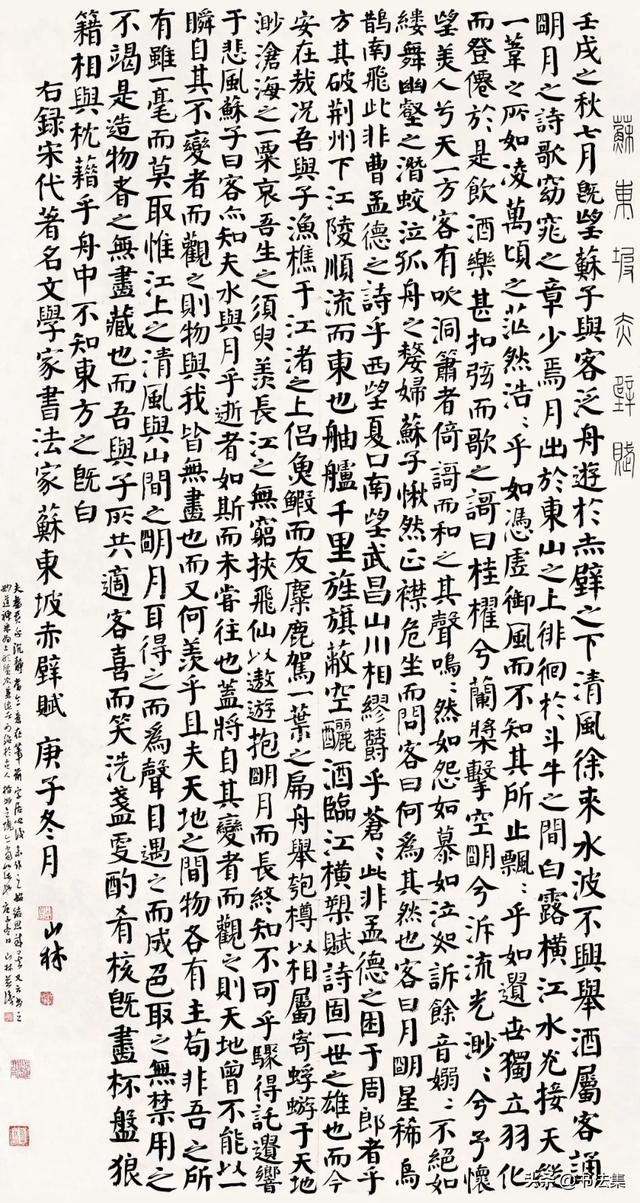 蘇東坡赤壁賦
壬戌之秋七月旣望蘇子與客泛舟遊於赤壁之下清風徐來水波不興舉酒屬客誦
明月之詩歌窈窕之章少焉月出於東山之上徘徊於斗牛之間白露橫江水光接天縱
一葦之所如凌萬頃之茫然浩:乎如馮虛御風而不知其所止飄:乎如遺世獨立羽化
而登僊於是飲酒樂甚扣弦而歌之謌曰桂櫂兮蘭槳擊空明兮泝流光渺:兮予懷
望美人兮天一方客有吹洞簫者倚謌而和之其聲嗚:然如怨如慕如泣如訴餘音嫋:不絕如
縷舞幽壑之潛蛟泣孤舟之嫠婦蘇子愀然正襟危坐而問客曰何為其然也客曰月明星稀烏
鵲南飛此非曹孟德之詩乎西望夏口南望武昌山川相繆鬱乎蒼:此非孟德之困于周郎者乎
方其破荊州下江陵順流而東也舳艫千里旌旗蔽空釃酒臨江橫槊賦詩固一世之雄也而今
安在哉況吾與子漁樵于江渚之上侶魚鰕而友麋鹿駕一葉之扁舟舉匏樽以相屬寄蜉蝣于天地
渺滄海之一粟哀吾生之須臾羨長江之無窮挾飛仙以遨遊抱明月而長終知不可乎驟得託遺響
于悲風蘇子曰客亦知夫水與月乎逝者如斯而未嘗往也蓋將自其變者而觀之則天地曾不能以一
瞬自其不變者而觀之則物與我皆無盡也而又何羨乎且夫天地之間物各有主苟非吾之所
有雖一毫而莫取惟江上之清風與山間之明月耳得之而爲聲目遇之而成色取之無禁用之
不竭是造物者之無盡藏也而吾與子所共適客喜而笑洗盞更酌肴核旣盡杯盤狼
籍相與枕藉乎舟中不知東方之旣白
右錄宋代著名文學家書法家蘇東坡赤壁賦 庚子冬月 山林
头条 @书法集